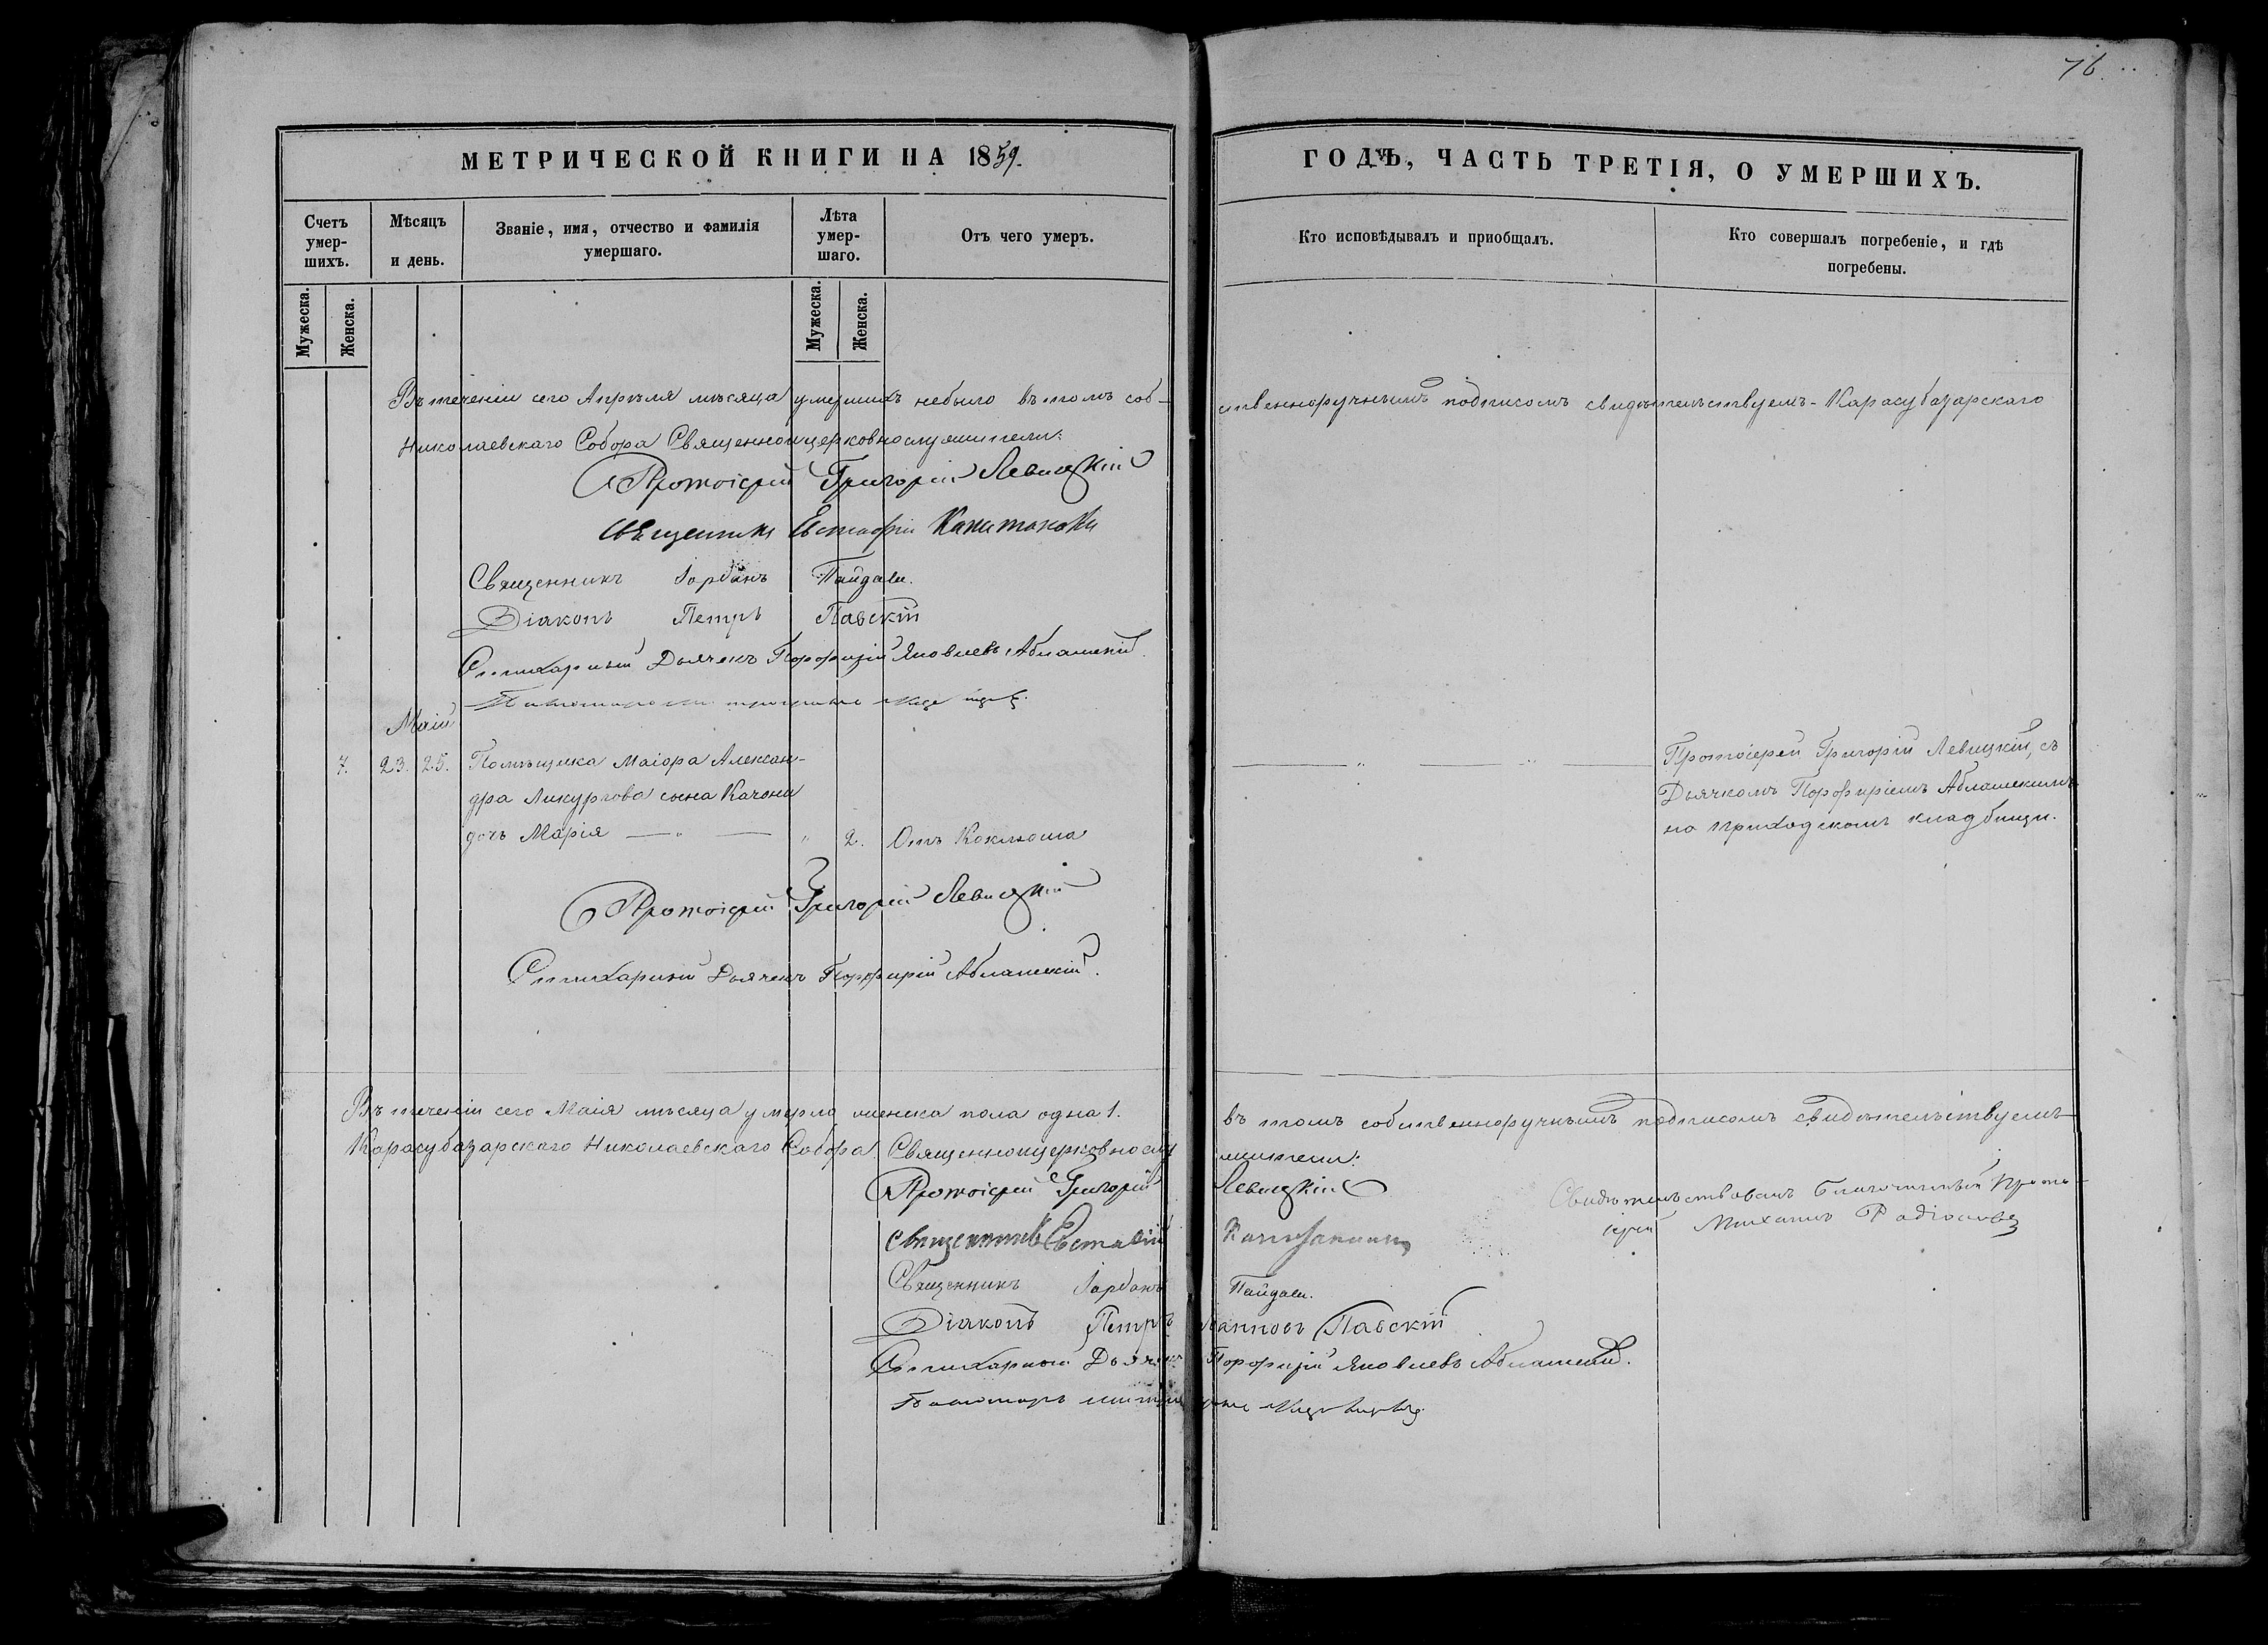 76
МЕТРИЧЕСКОЙ КНИГИ НА 1859.
ГОДЪ, ЧАСТЬ ТРЕТІЯ, О УМЕРШИХЪ.
Счетъ умер-шихъ.
Мѣсяцъ и день.
Званіе, имя, отчество и фамилія умершаго.
Лѣта умер-шаго.
Отъ чего умеръ.
Кто исповѣдывалъ и приобщалъ.
Кто совершалъ погребеніе, и гдѣ погребены.
Мужеска.
Женска.
Мужеска.
Женска.
Въ теченіи сего Апрѣля мѣсяца умершихъ небыло въ томъ соб-
ственноручнымъ подписомъ свидѣтельствуемъ - Карасубазарскаго
Николаевскаго Собора Священноицерковнослужители:
Протоіерей Григорій Левицкій
Священникъ Евстафій
Священникъ Іорданъ Пайдаси.
Діаконъ Петръ Павскій
Стихарный Дьячекъ Порфирій Яковлевъ Аблашекій.
Маій
7. 23. 25. Помѣщика Маіора Алексан-
дра Ликургова сына Качони
дочь Марія — „ — „ 2. Отъ Коклюша
Протоіерей Григорій Левицкій, съ
Дьячкомъ Порфиріемъ Аблашекимъ
на приходскомъ кладбищи.
Протоіерей Григорій Левицкій
Стихарный Дьячекъ Порфирій Аблашекій.
Въ теченіи сего Маія мѣсяца умерло женска пола одна 1.
въ томъ собственноручнымъ подписомъ свидѣтельствуемъ
Карасубазарскаго Николаевскаго Собора Священноицерковнослу
жители:
Протоіерей Григорій Левицкій
Свидѣтельствовалъ Благочинный Прото-
іерей Михаилъ
Священникъ Евстафій
Священникъ Іорданъ Пайдаси.
Діаконъ Петръ Іанновъ Павскій
Стихарный Дьячекъ Порфирій Яковлевъ Аблашекій.